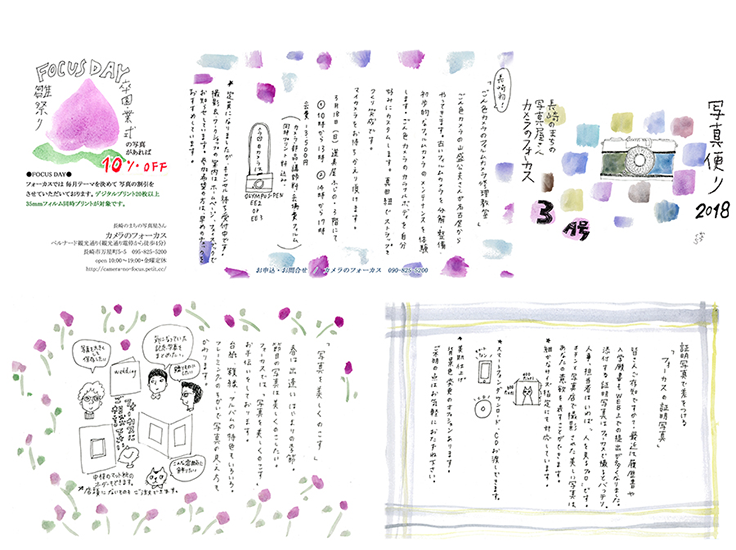 写真便り
2018
3月号
長崎のまちの
写真屋さん
カメラのフォーカス
長崎初！
「ごん色カメラのフィルムカメラ修理教室」
ごん色カメラの山盛公夫さんが名古屋から
やってきます。古いフィルムカメラを分解・整備・
初歩的なフィルムカメラのメンテナンスを体験
します。ごん色カメラのカラフルボディを自分
好みにカスタムします。真田紐でストラップを
つくり完成です。
マイカメラをお持ちかえり頂けます。
3月18日(日)
①10時から13時 ②14時から17時
会費 13,500円
今回のカメラは
OLYMPUS-PEN
EE2
or
EE3
お申込・お問合せ カメラのフォーカス 090-825-5200
FOCUS DAY
卒園卒業式
雛祭り
の写真
があれば
10% OFF
●FOCUS DAY●
フォーカスでは毎月テーマを決めて 写真の割引を
させていただいております。デジタルプリント20枚以上
35mmフィルム同時プリントが対象です。
長崎のまちの写真屋さん
カメラのフォーカス
ベルナード観光通り(観光通り電停から徒歩4分)
長崎市万屋町5-5 095-825-5200
open 10:00～19:00・金曜定休
http://camera-no-focus.petit.cc/
「写真を美しくのこす」
春は出逢いはじまりの季節。
節目の写真は美しくのこしたい。
フォーカスでは、「写真を美しくのこす」
お手伝いをしております。
台紙・額縁・アルバムの特色もいろいろ。
フレーミングのちがいで写真の見え方も
かわります。
写真を大きく
して保存したい
wedding
証明写真で差をつける
「フォーカスの証明写真」
皆さんご存知ですか？最近は履歴書や
入学願書もWEB上での提出が多くなりました。
添付する証明写真はフォーカスで撮るとバッチリ。
人事の担当者はいわば、人を見るプロです。
キチンと写真店で撮影された美しい写真は
あなたの熱意を表すことができます。
＊細かなサイズ指定にも対応しています。
＊スマートフォンダウンロード、CDお渡しできます。
ご不明の点はお気軽におたずね下さい。